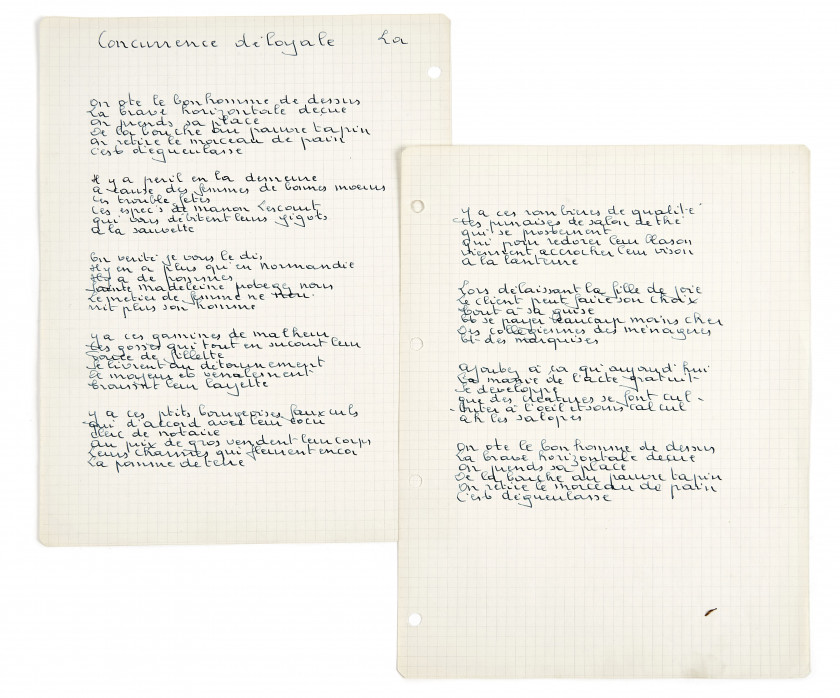 Concurrence déloyale La
On ote le bonhomme de dessus
La brave horizontale decue
On prends sa place
De la bouche au pauvre tapin
On retire le morceau de pain
C'est dégueulasse
Il y a peril en la demeure
a cause des femmes de bonnes moeurs
Ces trouble fetes
Ces espec's de manon Lescaut
qui vous débitent leurs gigots
a la sauvette
En verité je vous le dis
Il y en a plus qu'en normandie
Il y a de pommes
Sainte Madeleine protegez nous
Le metier de femme ne
rit plus son homme
y a ces gamines de malheur
Ces gosses qui tout en sucant leur
pouce de fillette
Se livrent au detournement
de majeur et venalement
trousent leur layette
y a ces ptits bourgeoises faux culs
qui d'accord avec leur cocu
clerc de notaire
au prix de gros vendent leur corps
Leurs charmes qui fleurent encor
La pomme de terre
y a ces rombières de qualité
Ces punaises de salon de thé
qui se prosternent
qui pour redorer leur blason
viennent accrocher leur vison
a la lanterne
Lors délaissant la fille de joie
Le client peut faire son choix
tout a sa guise
et se payer beaucoup moins cher
Des collégiennes des ménageres
et des marquises
ajoutez a ca qu'aujourd'hui
La manie de l'acte gratuit
Se developpe
que des creatures se font cul-
buter à l'oeil et sans calcul
ah les salopes
On ote le bonhomme de dessus
La brave horizontale decue
On prends sa place
De la bouche au pauvre tapin
On retire le morceau de pain
C'est dégueulasse